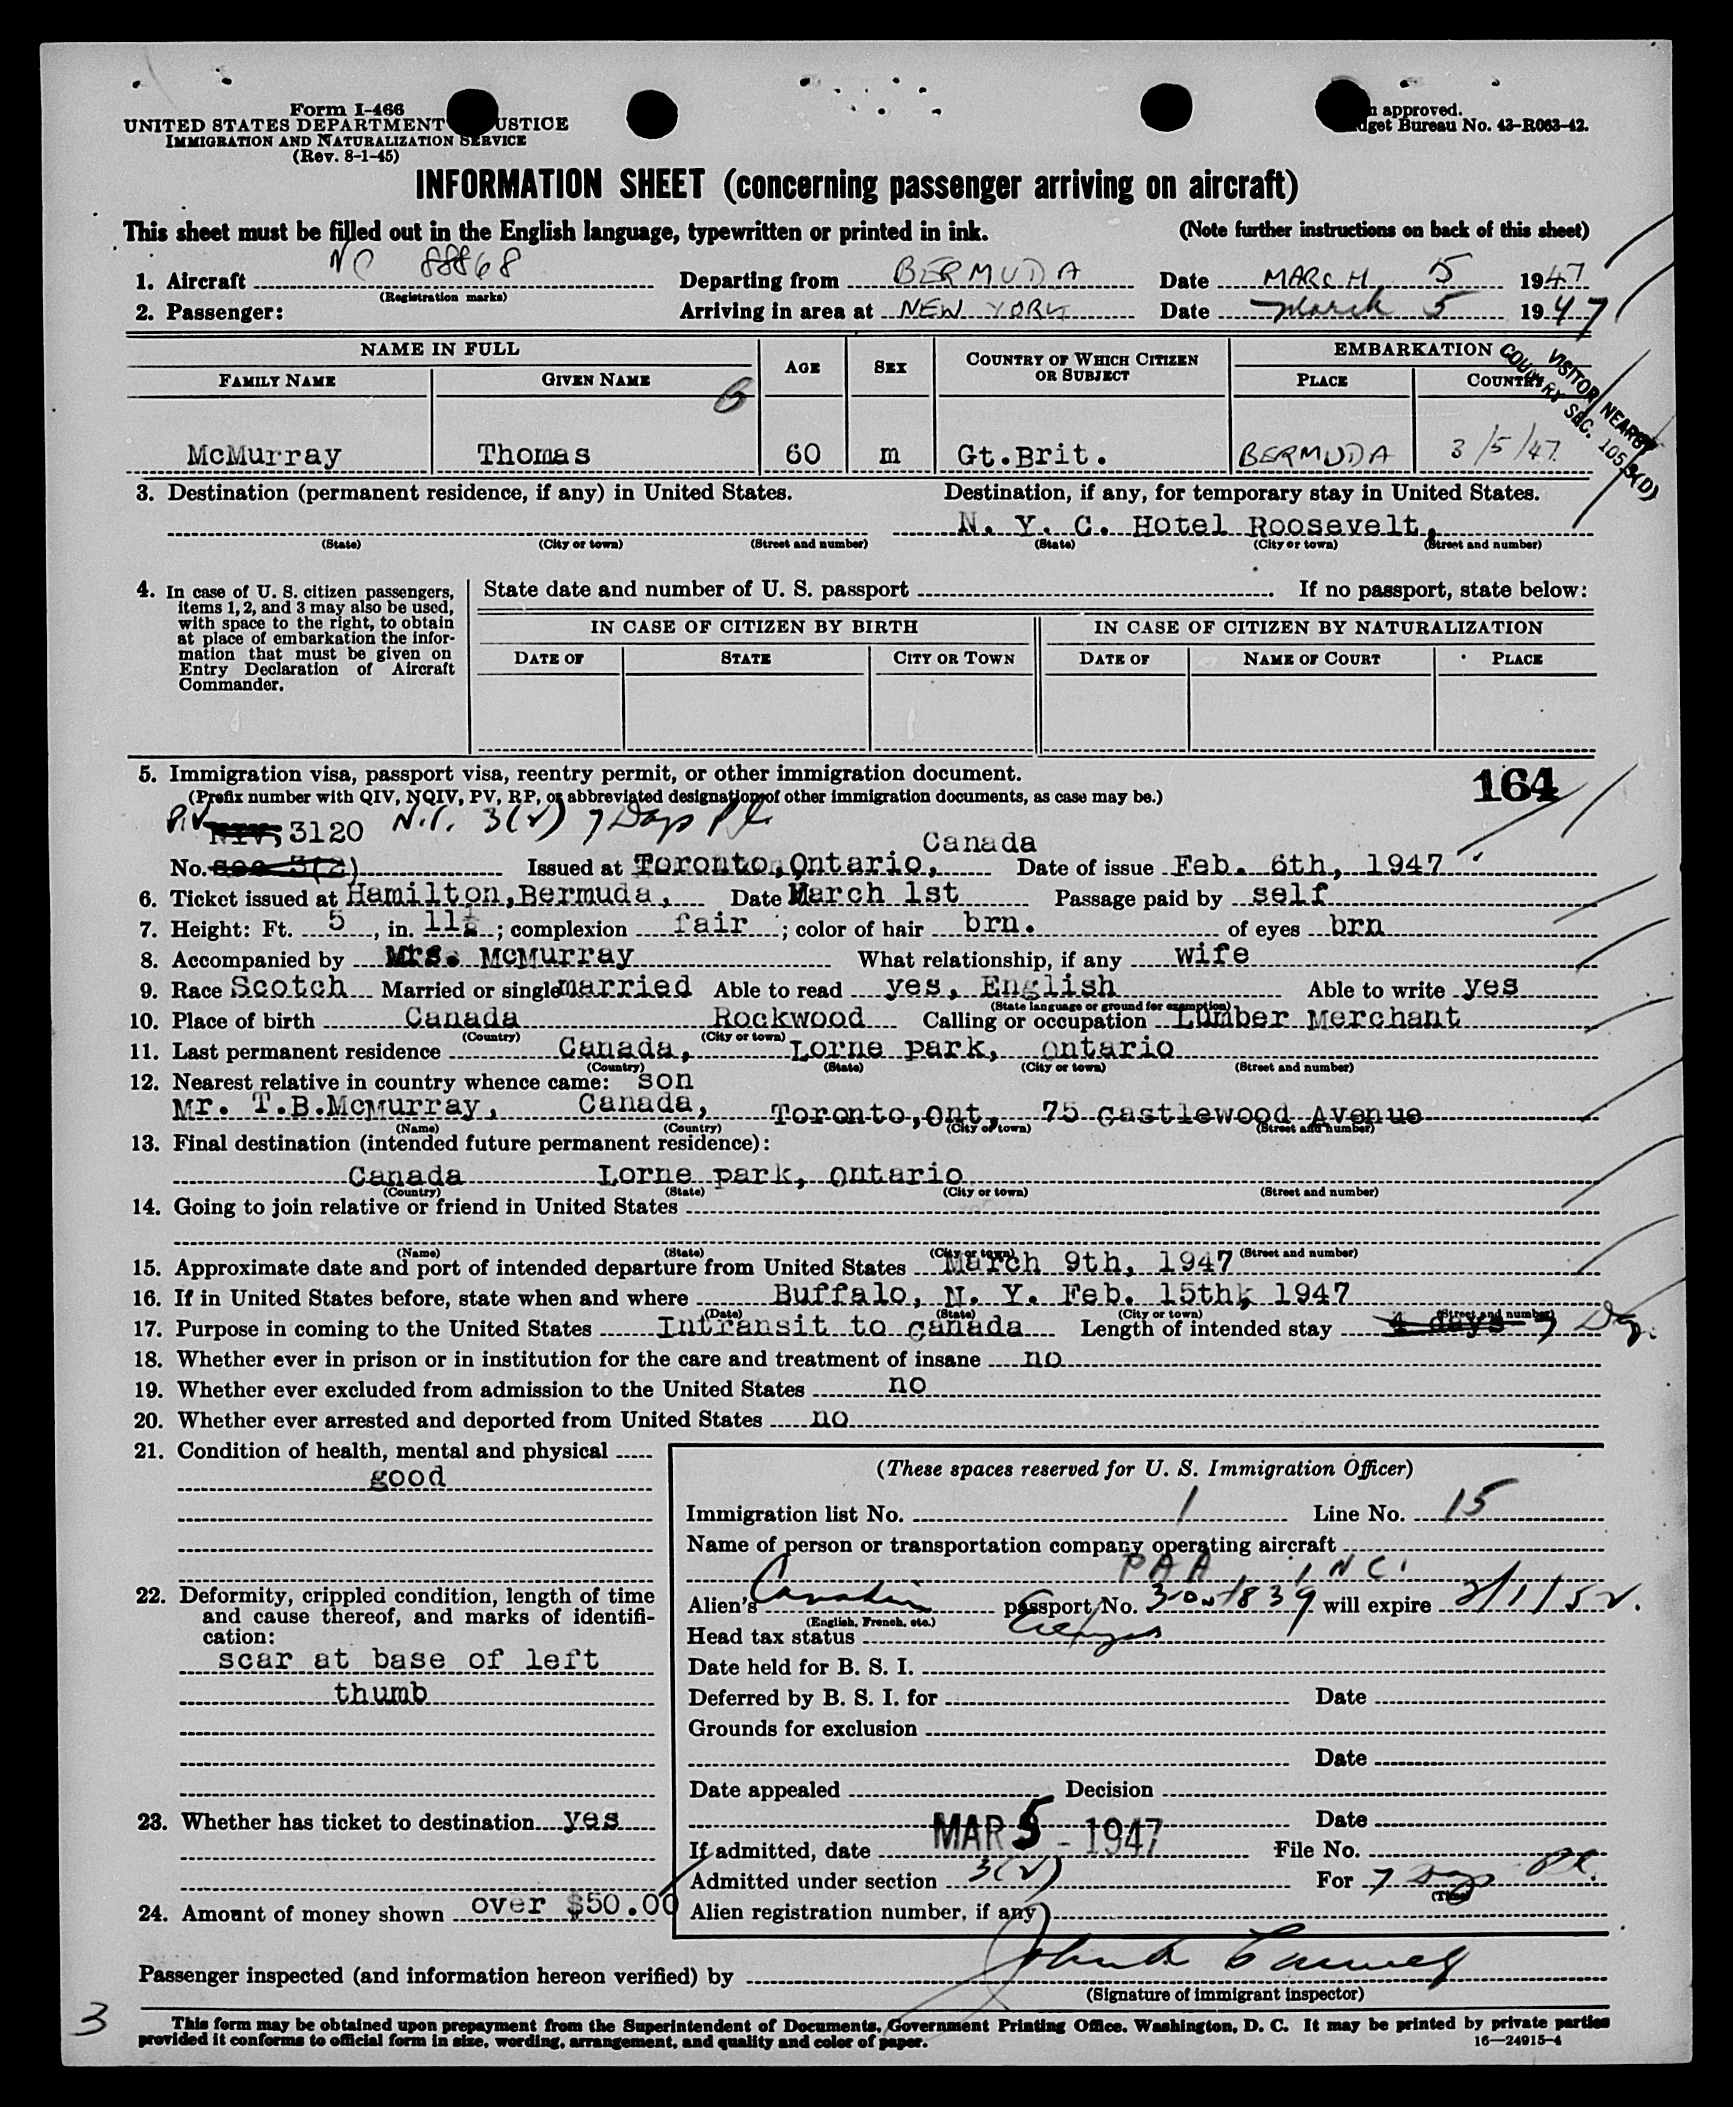 Form I-466
UNITED STATES DEPARTMENT USTICE
IMMIGRATION AND NATURALIZATION SERVICE
(Rev. 8-1-45)
approved.
get Bureau No. 43-R063-42.
INFORMATION SHEET (concerning passenger arriving on aircraft)
This sheet must be filled out in the English language, typewritten or printed in ink. (Note further instructions on back of this sheet)
1. Aircraft NC 88868 Departing from BERMUDA Date MARCH 5 1947
(Registration marks)
2. Passenger: Arriving in area at NEW YORK Date March 5 1947
NAME IN FULL AGE SEX COUNTRY OF WHICH CITIZEN OR SUBJECT EMBARKATION
FAMILY NAME GIVEN NAME PLACE COUNTRY
VISITOR NEARBY
COUNTRY SEC. 105.3(D)
McMurray Thomas 60 m Gt.Brit. BERMUDA 3/5/47
3. Destination (permanent residence, if any) in United States. Destination, if any, for temporary stay in United States.
N. Y. C. Hotel Roosevelt,
(State) (City or town) (Street and number) (State) (City or town) (Street and number)
4. In case of U. S. citizen passengers, items 1, 2, and 3 may also be used, with space to the right, to obtain at place of embarkation the information that must be given on Entry Declaration of Aircraft Commander.
State date and number of U. S. passport If no passport, state below:
IN CASE OF CITIZEN BY BIRTH IN CASE OF CITIZEN BY NATURALIZATION
DATE OF STATE CITY OR TOWN DATE OF NAME OF COURT PLACE
5. Immigration visa, passport visa, reentry permit, or other immigration document. 164
(Prefix number with QIV, NQIV, PV, RP, or abbreviated designation of other immigration documents, as case may be.)
PV NIV, 3120 3(2) 7 Days
Canada
No. sec 3(2) Issued at Toronto, Ontario, Date of issue Feb. 6th, 1947
6. Ticket issued at Hamilton, Bermuda, Date March 1st Passage paid by self
7. Height: Ft. 5, in. 11½; complexion fair; color of hair brn. of eyes brn
8. Accompanied by Mrs. McMurray What relationship, if any wife
9. Race Scotch Married or single married Able to read yes, English Able to write yes
(State language or ground for exemption)
10. Place of birth Canada Rockwood Calling or occupation Lumber Merchant
(Country) (City or town)
11. Last permanent residence Canada, Lorne park, ontario
(Country) (State) (City or town) (Street and number)
12. Nearest relative in country whence came: son
Mr. T.B.McMurray, Canada, Toronto, Ont, 75 Castlewood Avenue
(Name) (Country) (City or town) (Street and number)
13. Final destination (intended future permanent residence):
Canada Lorne park, ontario
(Country) (State) (City or town) (Street and number)
14. Going to join relative or friend in United States
(Name) (State) (City or town) (Street and number)
15. Approximate date and port of intended departure from United States March 9th, 1947
16. If in United States before, state when and where Buffalo, N. Y. Feb. 15th, 1947
(Date) (State) (City or town) (Street and number)
17. Purpose in coming to the United States Intransit to canada Length of intended stay 4 days 7 Days
18. Whether ever in prison or in institution for the care and treatment of insane no
19. Whether ever excluded from admission to the United States no
20. Whether ever arrested and deported from United States no
21. Condition of health, mental and physical
good
22. Deformity, crippled condition, length of time and cause thereof, and marks of identification:
scar at base of left
thumb
23. Whether has ticket to destination yes
24. Amount of money shown over $50.00
(These spaces reserved for U. S. Immigration Officer)
Immigration list No. 1 Line No. 15
Name of person or transportation company operating aircraft
PAA INC.
Alien's Canadian passport No. will expire 2/1/52
(English, French, etc.)
Head tax status
Date held for B. S. I.
Deferred by B. S. I. for Date
Grounds for exclusion
Date
Date appealed Decision
Date
If admitted, date MAR 5 - 1947 File No.
Admitted under section 3(2) For 7 Days
(Time)
Alien registration number, if any
Passenger inspected (and information hereon verified) by
(Signature of immigrant inspector)
3
This form may be obtained upon prepayment from the Superintendent of Documents, Government Printing Office, Washington, D. C. It may be printed by private parties
provided it conforms to official form in size, wording, arrangement, and quality and color of paper. 16—24915-4